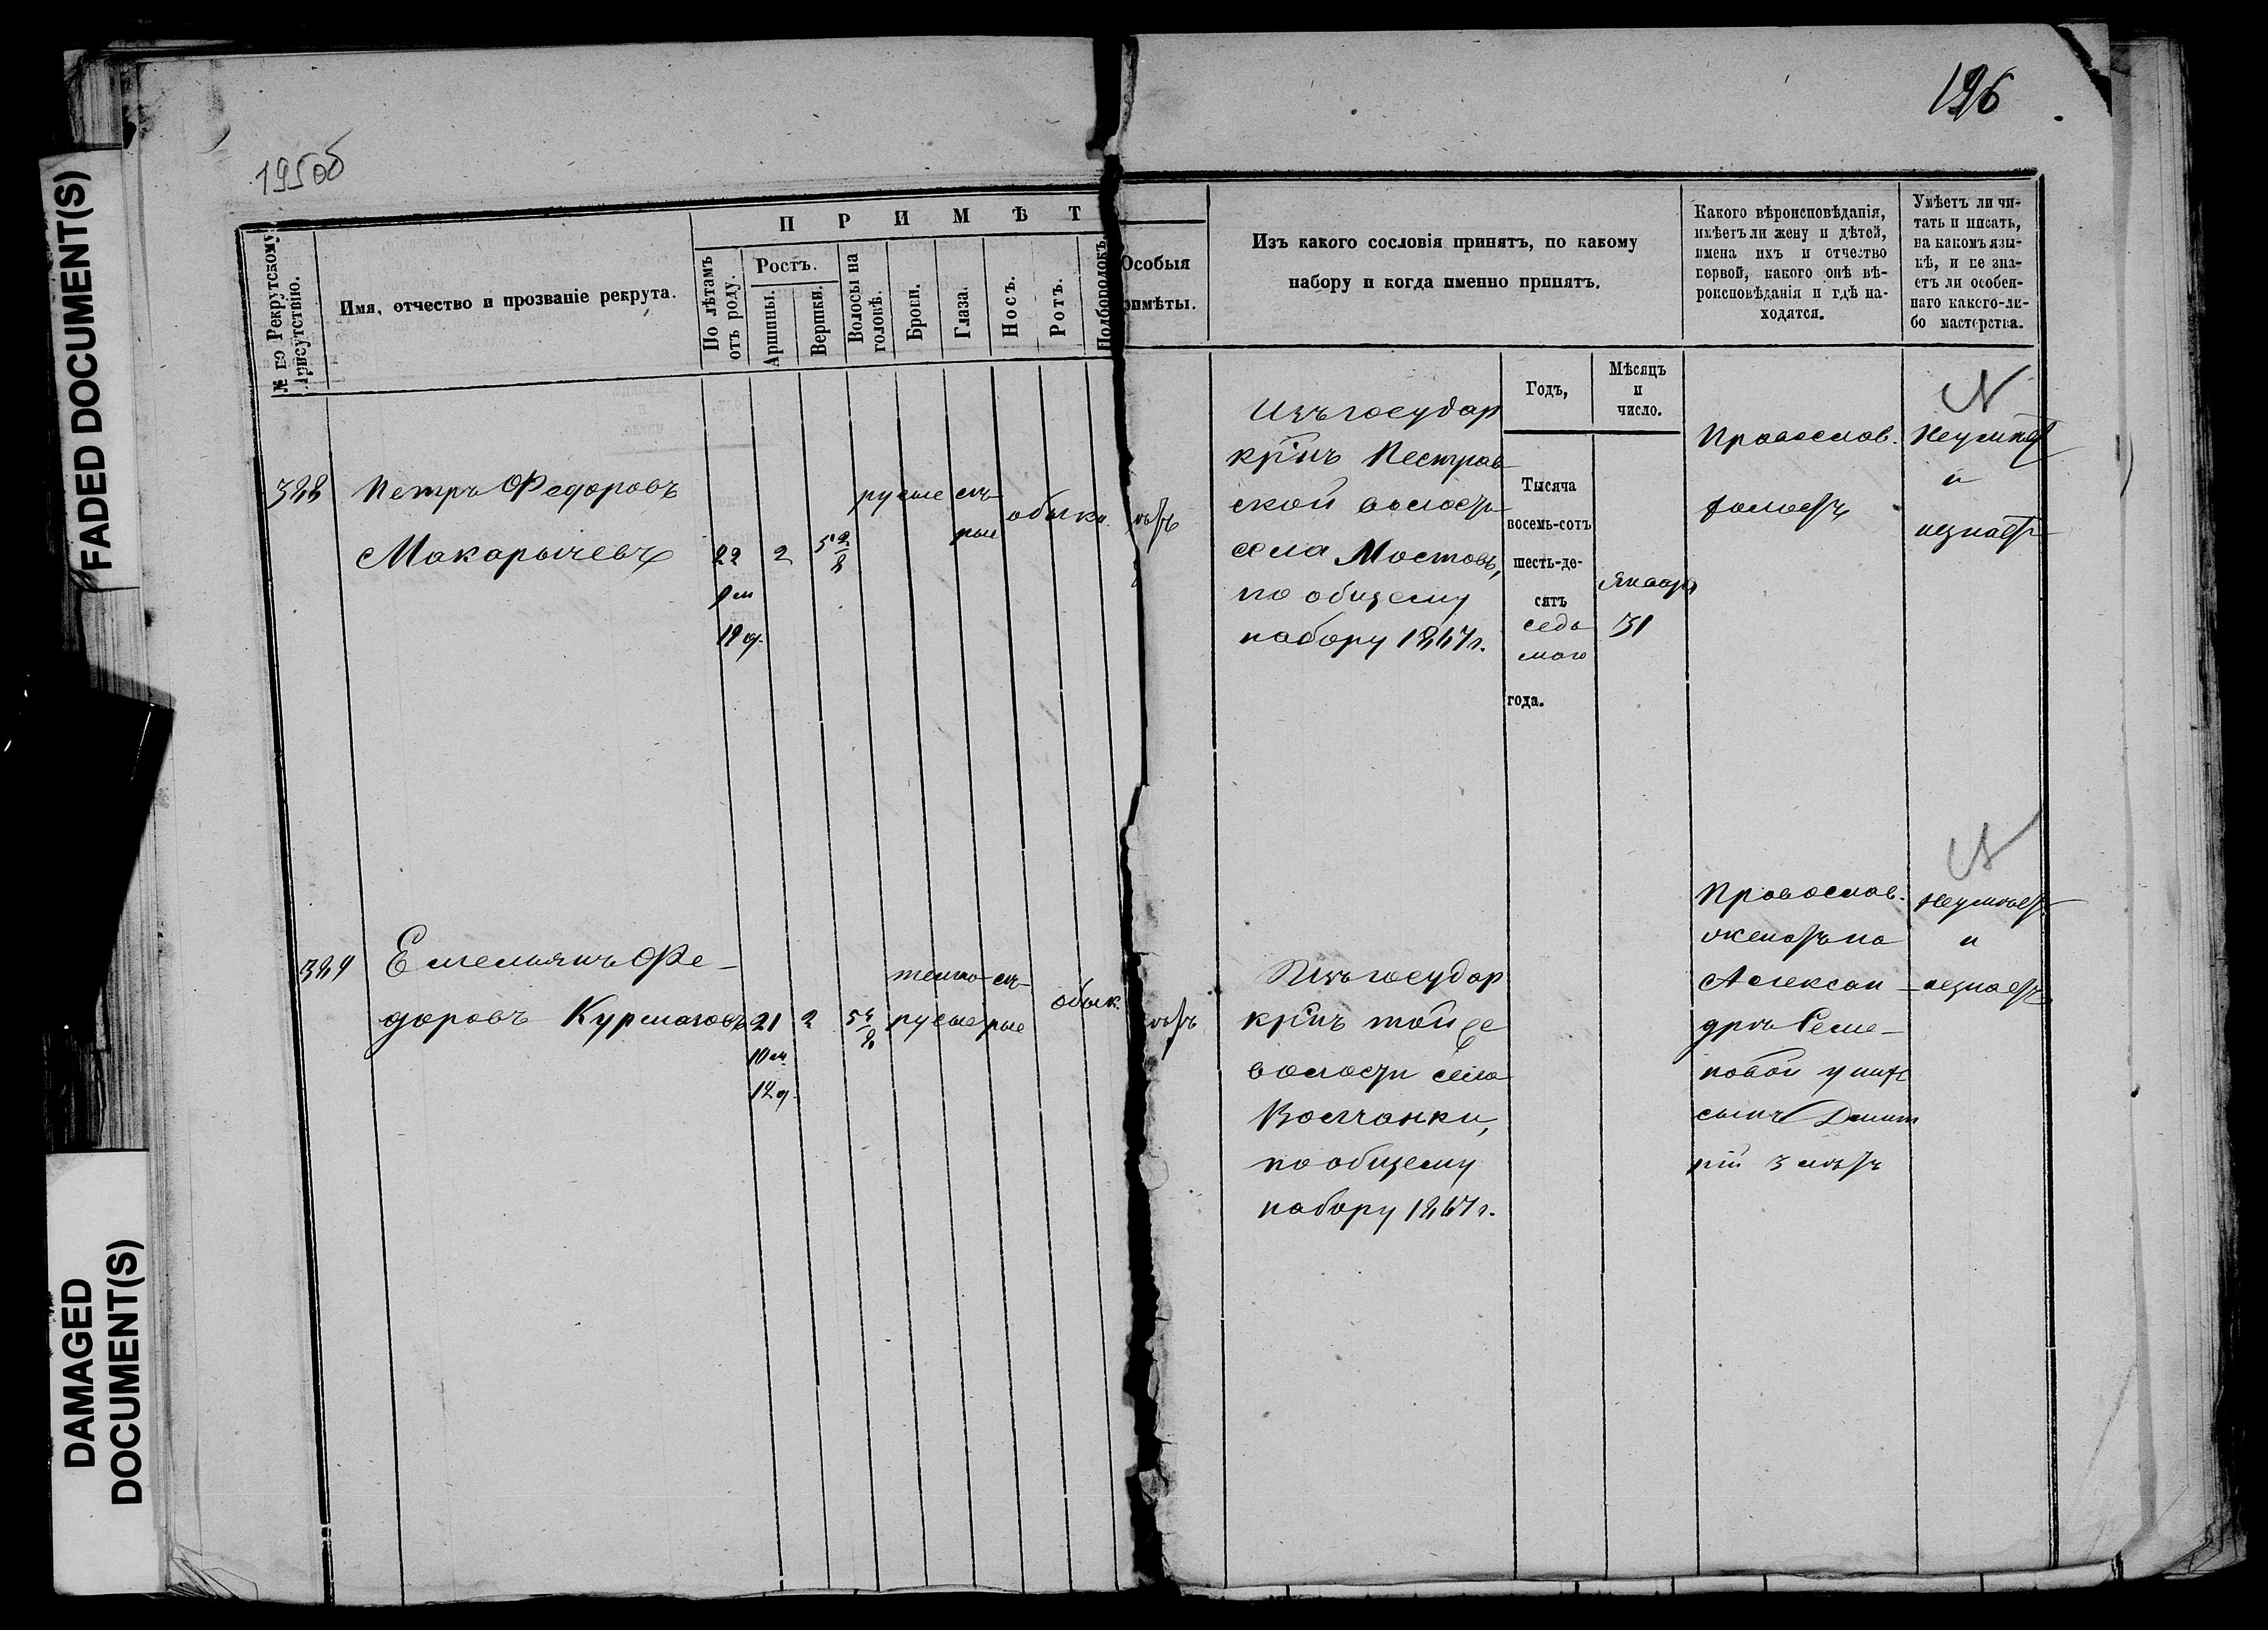 FADED DOCUMENT(S)
DAMAGED
DOCUMENT(S)
195об
196
№ по Рекрутскому Присутствію.
Имя, отчество и прозваніе рекрута.
П Р И М Ѣ Т
По лѣтамъ отъ роду.
Ростъ.
Аршины.
Вершки.
Волосы на головѣ.
Брови.
Глаза.
Носъ.
Ротъ.
Подбородокъ.
Особыя
римѣты.
Изъ какого сословія принятъ, по какому
набору и когда именно принятъ.
Какого вѣроисповѣданія,
имѣетъ ли жену и дѣтей,
имена ихъ и отчество
первой, какого онѣ вѣ-
роисповѣданія и гдѣ на-
ходятся.
Умѣетъ ли чи-
тать и писать,
на какомъ язы-
кѣ, и не зна-
етъ ли особен-
наго какого-ли-
бо мастерства.
Годъ,
Мѣсяцъ
и
число.
388
Петръ Федоровъ
Макарычевъ
22
9 м
19 д.
2
5 2/8
русые
сѣ-
рые
обыкн.
нѣтъ
Изъ государ
кр᾿нъ Пестрав
ской волости
села Мостовъ,
по общему
набору 1867 г.
Тысяча
восемь-сотъ
шесть-де-
сятъ
седь
маго
года.
Января
31
Православ.
холостъ
Неумѣетъ
и
незнаетъ
389
Емельянъ Фе-
доровъ Курмазовъ
21
10 м.
12 д.
2
5 4/8
темно-
русые
сѣ-
рые
обык.
нѣтъ
Изъ государ
кр᾿нъ той же
волости села
Волчанки,
по общему
набору 1867 г.
Православ.
женатъ на
Алексан-
дрѣ Семе-
новой у нихъ
сынъ Димит
рій 3 лѣтъ
Неумѣетъ
и
незнаетъ